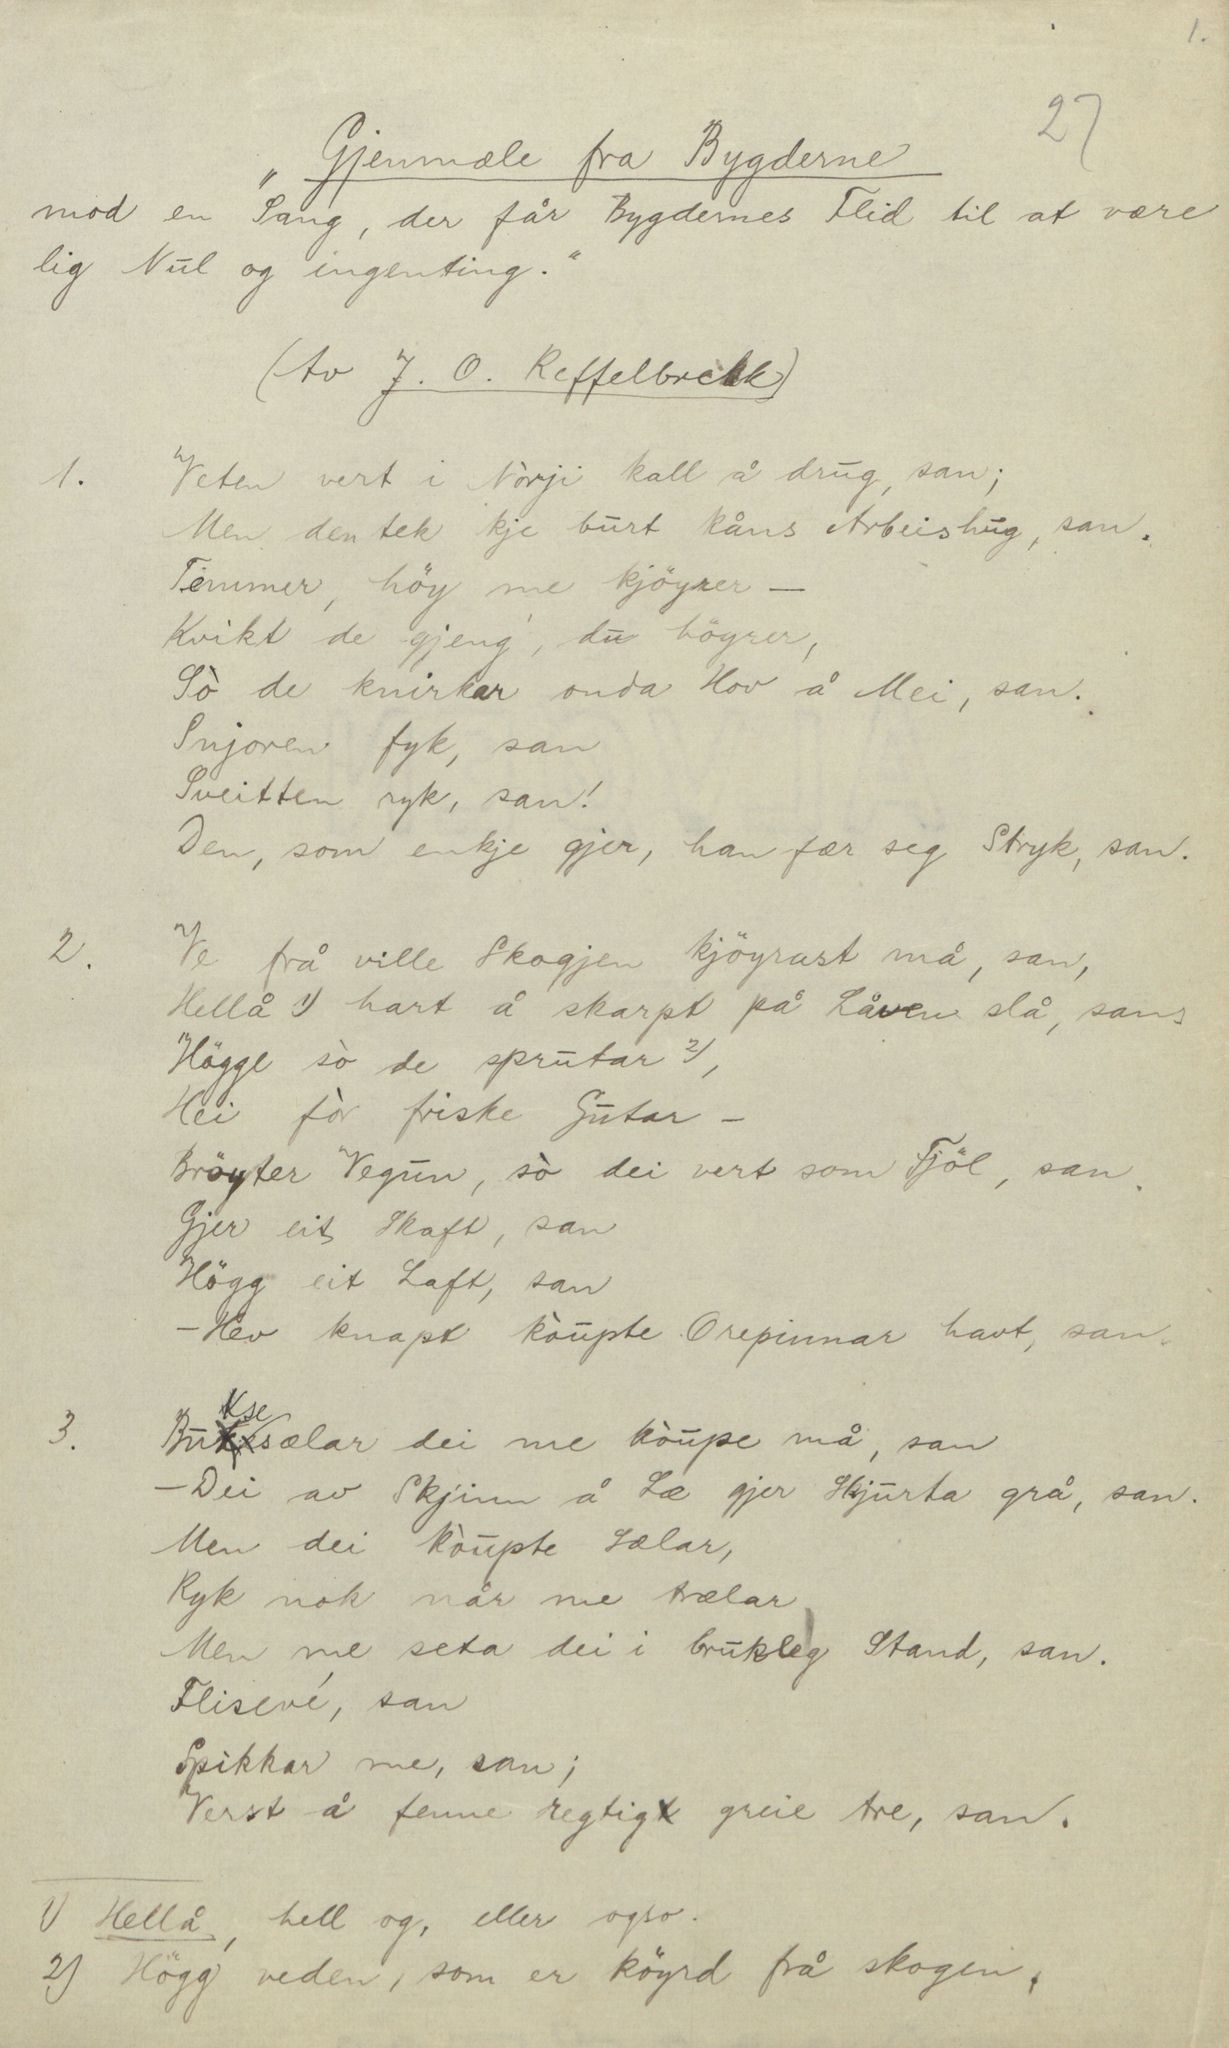 1.
27
„Gjenmæle fra Bygderne
mod en Sang, der får Bygdernes Flid til at være
lig Nul og ingenting.“
(Av J. O. Reffelbrekk)
1. Veten vert i Nòrji kall å drug, san;
Men den tek kje burt kåns Arbeishug, san.
Temmer, höy me kjöyrer —
Kvikt de gjeng, du höyrer,
Sò de knirkar onda Hov å Mei, san.
Snjoren fyk, san
Sveitten ryk, san!
Den, som enkje gjer, han fær seg Stryk, san.
2. Ve frå ville Skogjen kjöyrast må, san,
Hellå 1) hart å skarpt på Låven slå, san,
Högge sò de sprutar 2),
Hei fòr friske Gutar –
Bröyter Vegun, sò dei vert som Fjöl, san.
Gjer eit Skaft, san
Högg eit Laft, san
– Hev knapt kòupte Orepinnar havt, san.
3. Buksesælar dei me kòupe må, san
– Dei av Skjinn å Læ gjer Skjurta grå, san.
Men dei kòupte Sælar,
Ryk nok når me trælar
Men me seta dei i brukleg Stand, san.
Flisevé, san
Spikkar me, san;
Verst å fenne regtigt greie tre, san.
1) Hellå, hell og, eller ogso.
2) Högg veden, som er köyrd frå skogen.